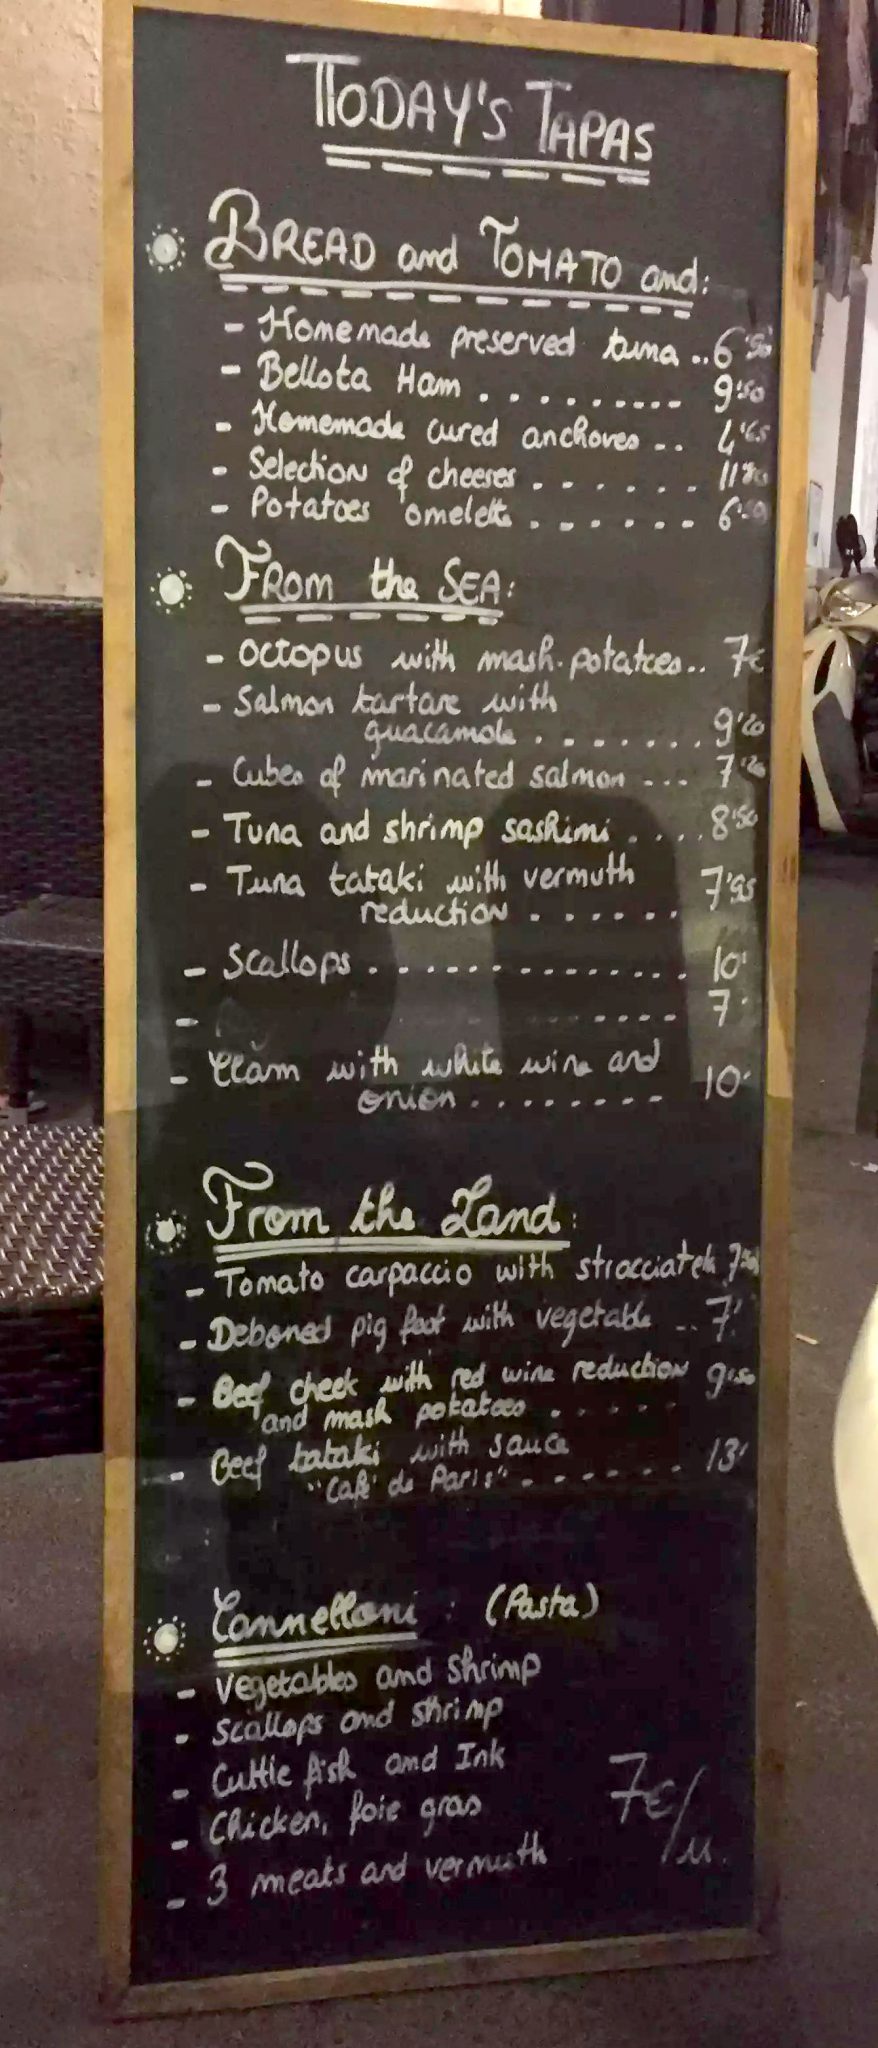 TODAY'S TAPAS
BREAD and TOMATO and:
- Homemade preserved tuna .. 6'50
- Bellota Ham .......... 9'50
- Homemade cured anchoves .. 4'65
- Selection of cheeses ......
- Potatoes omelette ...... 6'50
FROM the SEA:
- Octopus with mash potatoes.. 7€
- Salmon tartare with
guacamole ....... 9'20
- Cubes of marinated salmon ... 7'20
- Tuna and shrimp sashimi .... 8'50
- Tuna tataki with vermuth 7'95
reduction ......
- Scallops .............. 10'
- ........ 7'
- Clam with white wine and
onion ........ 10'
From the Land:
- Tomato carpaccio with stracciatella
- Deboned pig foot with vegetable .. 7'
- Beef cheek with red wine reduction 9'50
and mash potatoes .....
- Beef tataki with sauce 13'
"Café de Paris" ......
Cannelloni : (Pasta)
- Vegetables and shrimp
- Scallops and shrimp
- Cuttle fish and Ink
- Chicken, foie gras
7€/u.
- 3 meats and vermuth